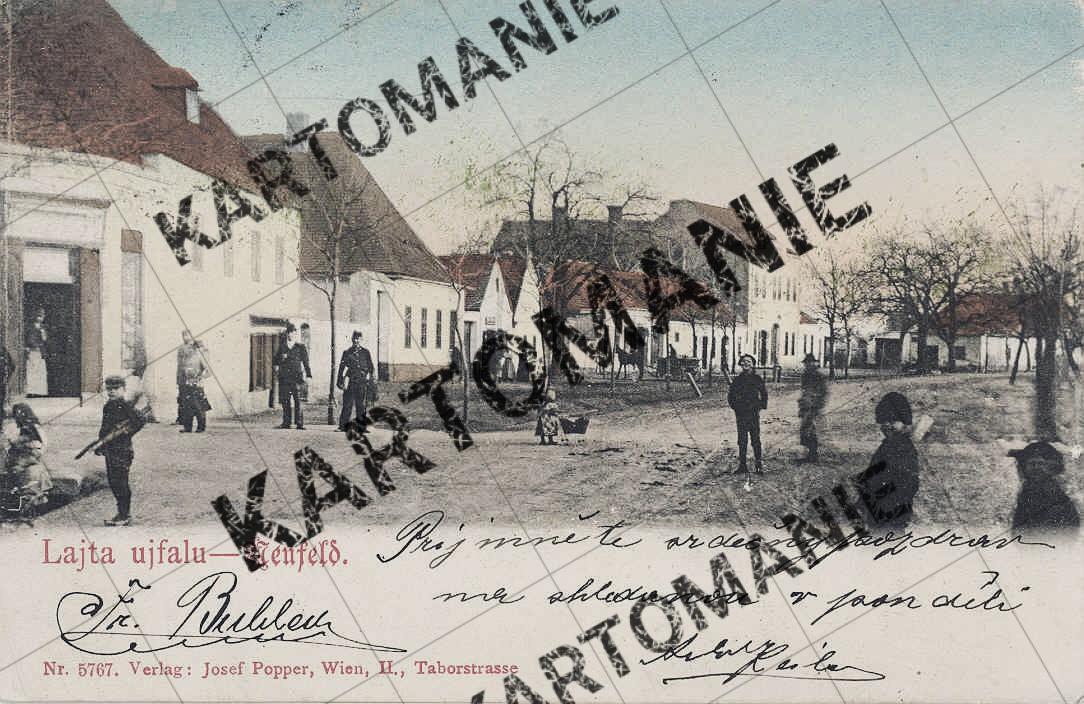 KARTOMANIE
KARTOMANIE
KARTOMANIE
KARTOMANIE
Lajta ujfalu—Neufeld.
Přijměte srdečný pozdrav
na shledanou v pondělí
Fr.
Nr. 5767. Verlag: Josef Popper, Wien, II., Taborstrasse